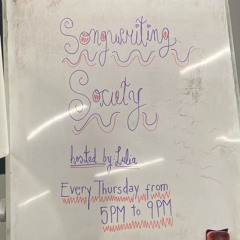 Songwriting
Society
hosted by Lulia
Every Thursday from
5PM to 9PM